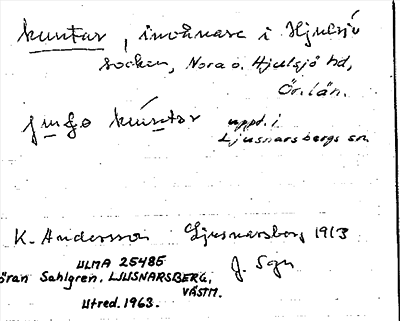 kuntar, invånare i Hjulsjö
socken, Nora o. Hjulsjö hd,
Ör. län.
kúntar uppt. i
Ljusnarsbergs sn.
K. Andersson Ljusnarsberg 1913
ULMA 25485
öran Sahlgren, LJUSNARSBERG,
VÄSTM.
Utred. 1963.